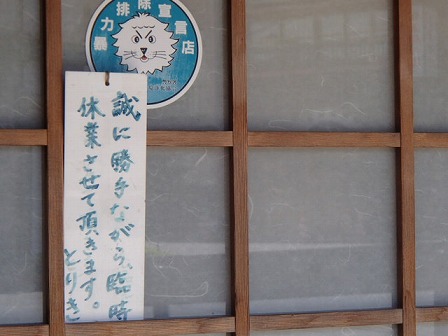 暴力排除宣言店
誠に勝手ながら、臨時
休業させて頂きます。
とりき